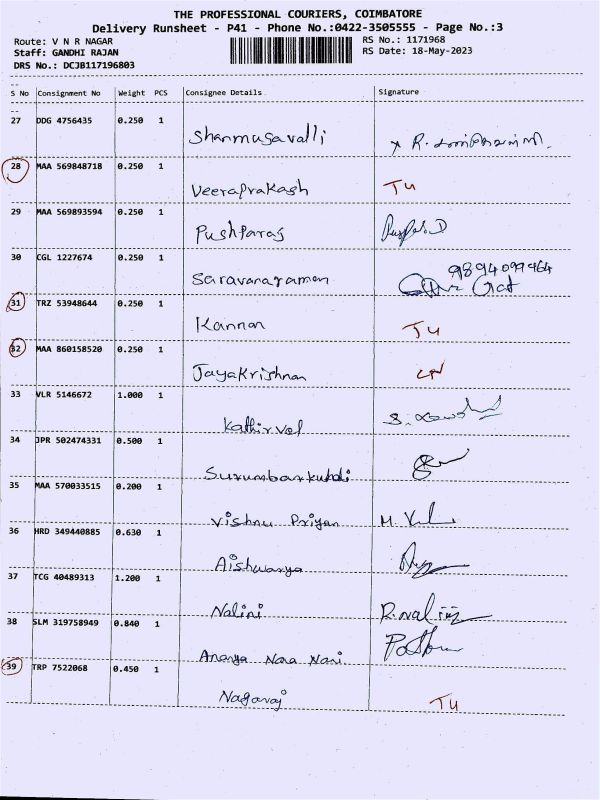 THE PROFESSIONAL COURIERS, COIMBATORE
Delivery Runsheet - P41 - Phone No.:0422-3505555 - Page No.:3
Route: V N R NAGAR RS No.: 1171968
Staff: GANDHI RAJAN RS Date: 18-May-2023
DRS No.: DCJB117196803
S No Consignment No Weight PCS Consignee Details Signature
27 DDG 4756435 0.250 1
Shanmugavalli
28 MAA 569848718 0.250 1
Veeraprakash TU
29 MAA 569893594 0.250 1
Pushparaj
30 CGL 1227674 0.250 1
9894099464
Saravanaraman
31 TRZ 53948644 0.250 1
Kannan TU
32 MAA 860158520 0.250 1
JayaKrishnan
33 VLR 5146672 1.000 1
Kathirvel
34 JPR 502474331 0.500 1
35 MAA 570033515 0.200 1
Vishnu Priyan
36 HRD 349440885 0.630 1
Aishwarya
37 TCG 40489313 1.200 1
Nalini R.nalini
38 SLM 319758949 0.840 1
39 TRP 7522068 0.450 1
Nagaraj TU